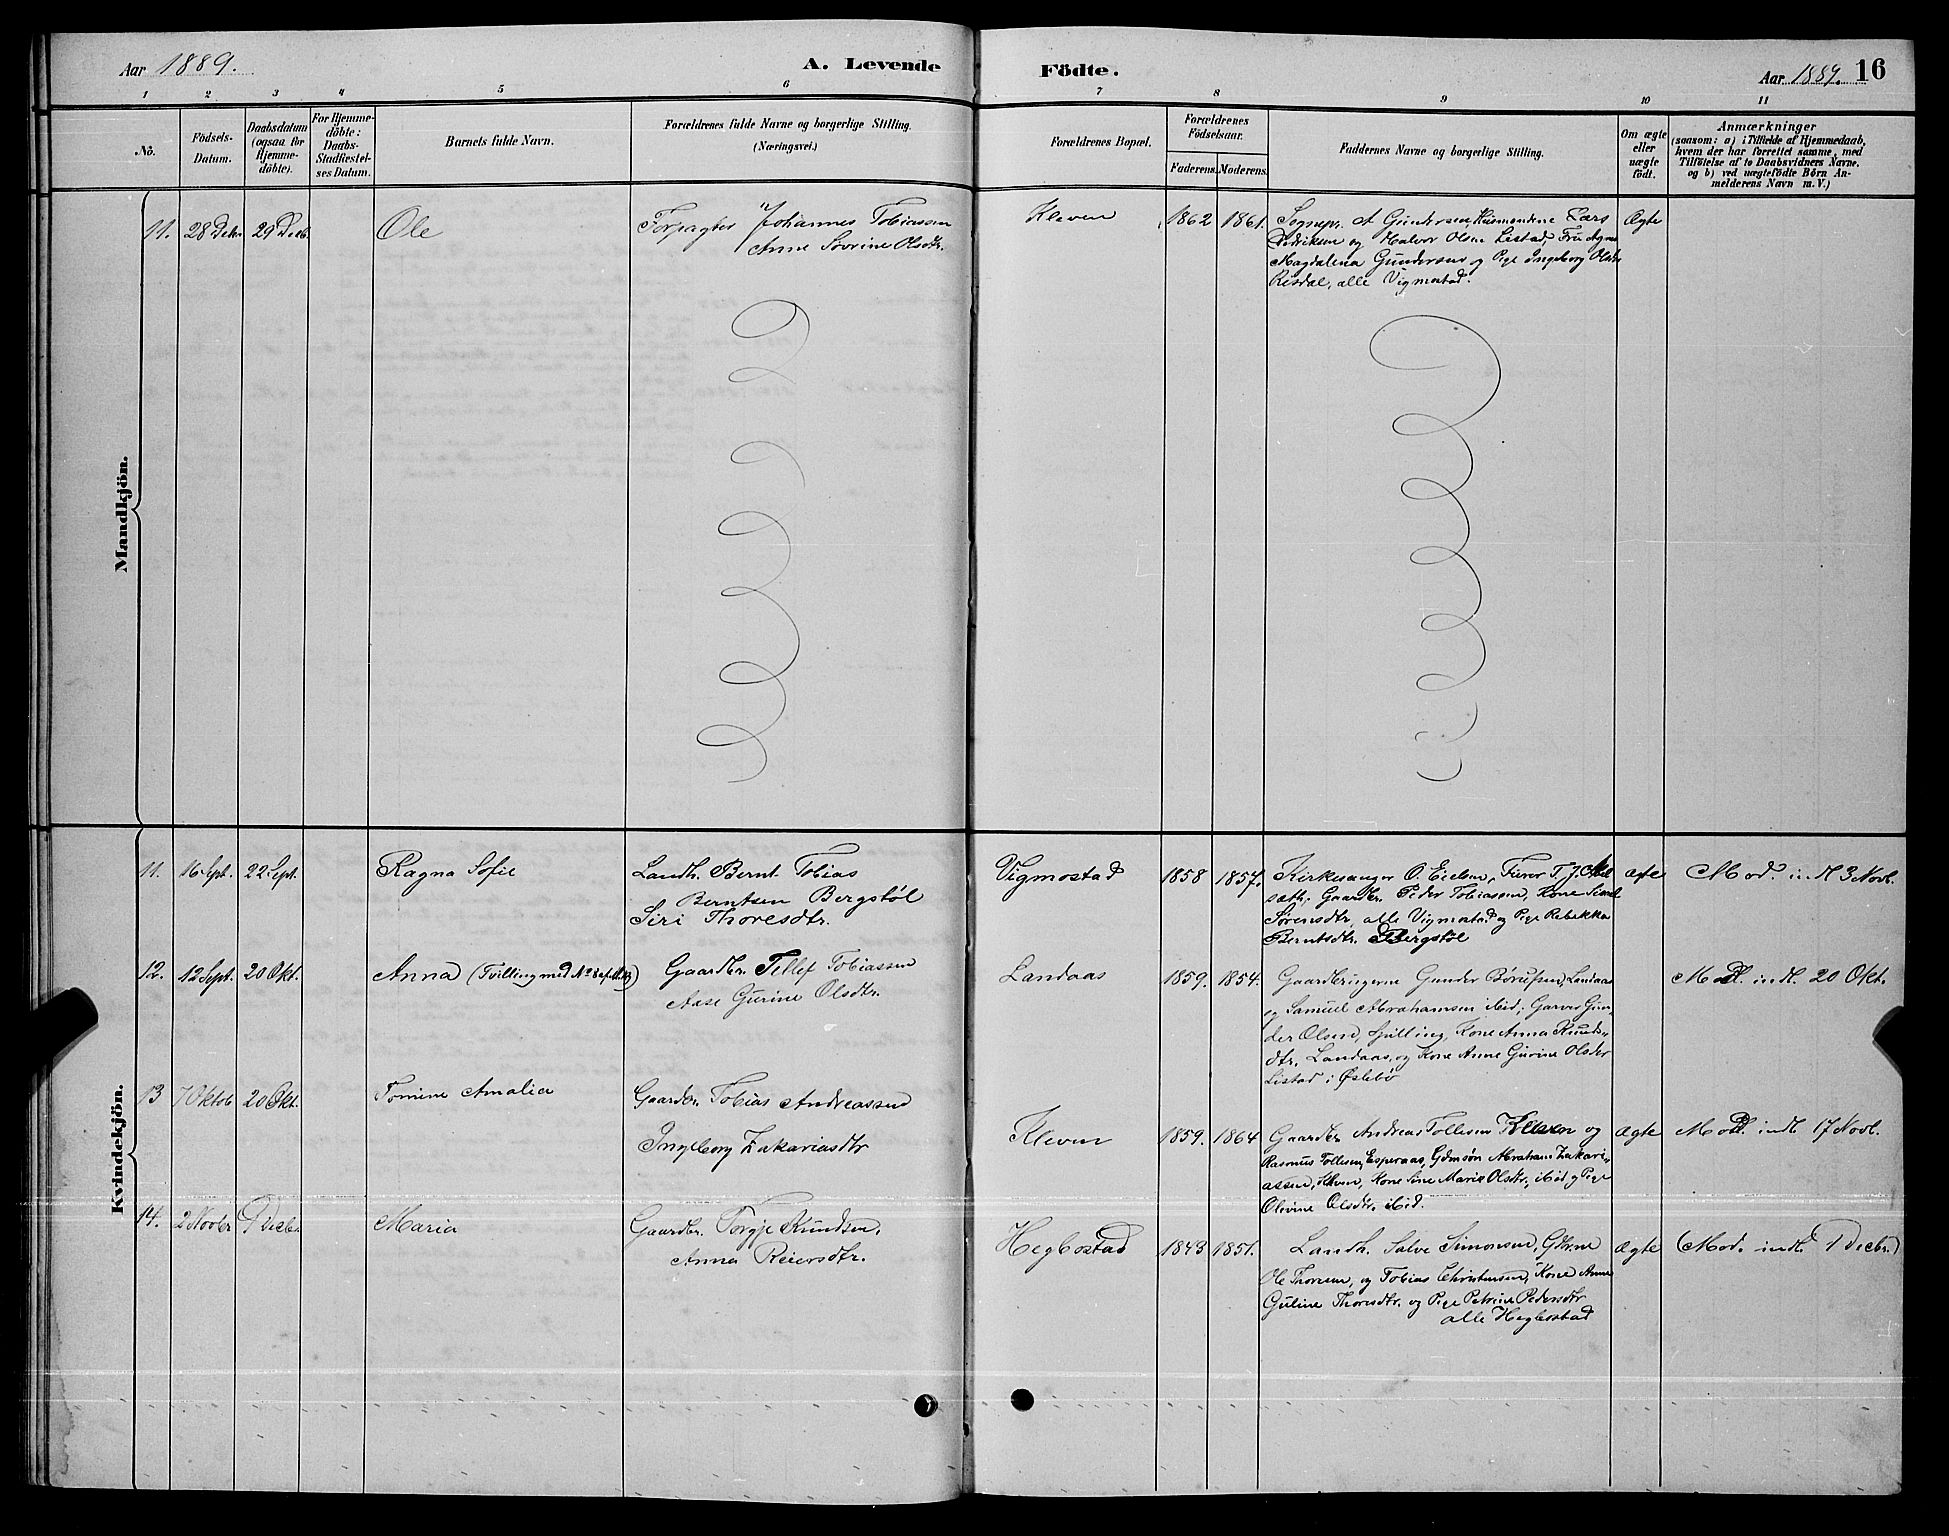 Aar 1889.
A. Levende
Födte.
Aar 1889. 16
1 2 3 4 5 6 7 8 9 10 11
No.
Födsels-
Datum.
Daabsdatum
(ogsaa for
Hjemme-
döbte).
For Hjemme-
döbte:
Daabs-
Stadfæstel-
ses Datum.
Barnets fulde Navn.
Forældrenes fulde Navne og borgerlige Stilling.
(Næringsvei.)
Forældrenes Bopæl.
Forældrenes
Födselsaar.
Faderens. Moderens.
Faddernes Navne og borgerlige Stilling.
Om ægte
eller
uægte
födt.
Anmærkninger
(saasom: a) i Tilfælde af Hjemmedaab,
hvem der har forrettet samme, med
Tilföielse af to Daabsvidners Navne,
og b) ved uægtefödte Börn An-
melderens Navn m. V.)
Mandkjön.
11. 28 Debr 29 Decb. Ole
Forpagter Johannes Tobiassen
Anne Severine Olsdtr.
Kleven 1862 1861.
Sognepr. A Gundersen, Husmændene Lars
Fredriksen og Halvor Olsen Listad, Fru Agnes
Magdalena Gundersen og Pige Ingeborg Olsdtr
Risdal, alle Vigmostad.
Ægte
Kvindekjön.
11. 16 Sept. 22 Sept. Ragna Sofie
Landh. Bernt Tobias
Berntsen Bergstøl
Siri Thoresdtr.
Vigmostad 1858 1857.
Kirkesanger O. Eielsen, Furer T. J.
sæth, Gaardbr. Peder Tobiassen, Kone
Sørensdtr, alle Vigmostad og Pige Rebekka
Berntsdtr. Bergstøl
Mod. indl 3 Novl.
12. 12 Sept. 20 Okt. Anna (Tvilling med No 8
Gaardbr. Tellef Tobiassen
Aase Gurine Olsdtr.
Landaas 1859. 1854.
Gaardbrugerne Gunder Børufsen, Landaas
og Samuel Abrahamsen ibid; Garver Gun-
der Olsen, Kone Anna Knuds-
dtr. Landaas, og Kone Anne Gurine Olsdtr
Listad i Øslebø
Mod. indl. 20 Okt.
13 7 Oktob 20 Okt. Tomine Amalia
Gaardbr. Tobias Andreassen
Ingeborg Zakariasdtr
Kleven 1859. 1864
Gaardbr Andreas Tollesen Kleven og
Rasmus Tollesen, Esperaas, Gdmsøn Abraham Zakari-
assen, Kleven, Kone Sine Marie Olsdtr, ibid og Pige
Olivine Olsdtr. ibid.
Ægte
Mod. indl. 17 Novl.
14. 2 Novbr 1 Decbr. Maria
Gaardbr. Torgje Knudsen,
Anna Reiersdtr.
Heglestad 1843 1851.
Landh. Salve Simonsen, Gdbrne
Ole Thoresen, og Tobias Christensen, Kone Anne
Guline Thoresdtr. og Pige Petrine Pedersdtr
alle Heglestad
Ægte
(Mod. indl. 1 Decbr.)